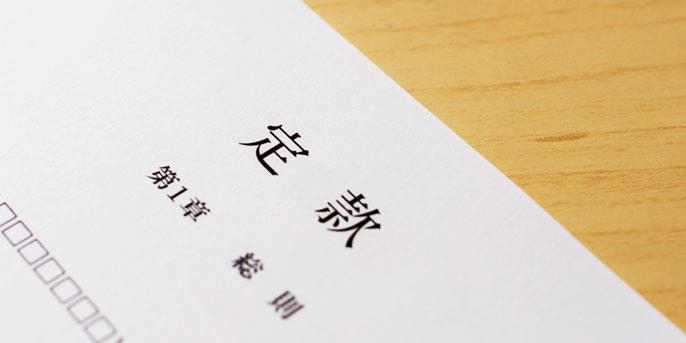 定款
第1章 総則
□□□□□□□□